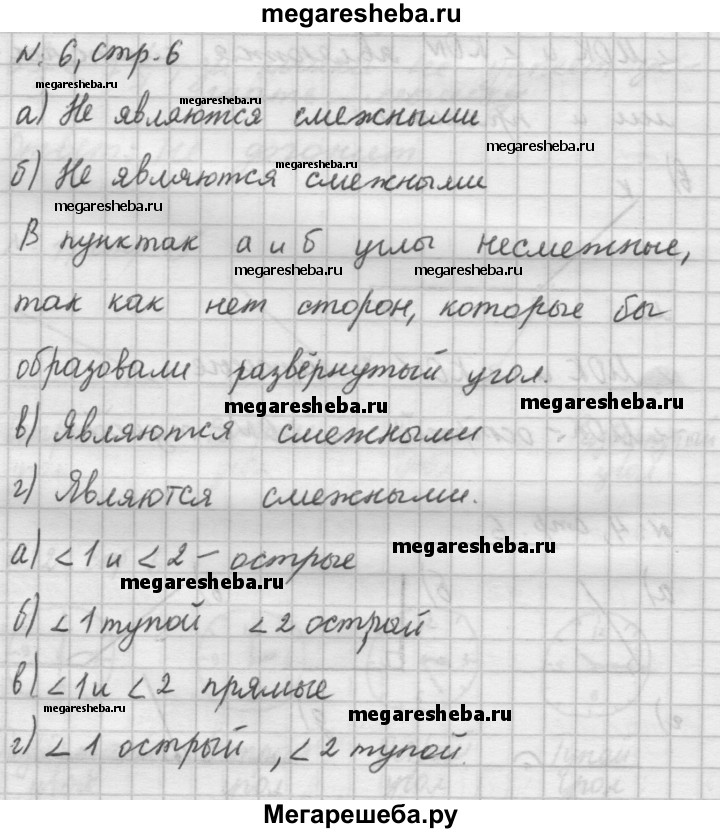 megaresheba.ru
№ 6, стр. 6
megaresheba.ru
megaresheba.ru
а) Не являются смежными
megaresheba.ru
б) Не являются смежными
megaresheba.ru
megaresheba.ru
В пунктах а и б углы несмежные,
megaresheba.ru
megaresheba.ru
так как нет сторон, которые бы
образовали развёрнутый угол.
megaresheba.ru
megaresheba.ru
в) Являются смежными
г) Являются смежными.
а) ∠1 и ∠2 – острые
megaresheba.ru
megaresheba.ru
б) ∠1 тупой ∠2 острый
в) ∠1 и ∠2 прямые
megaresheba.ru
megaresheba.ru
г) ∠1 острый, ∠2 тупой.
Мегарешеба.ру